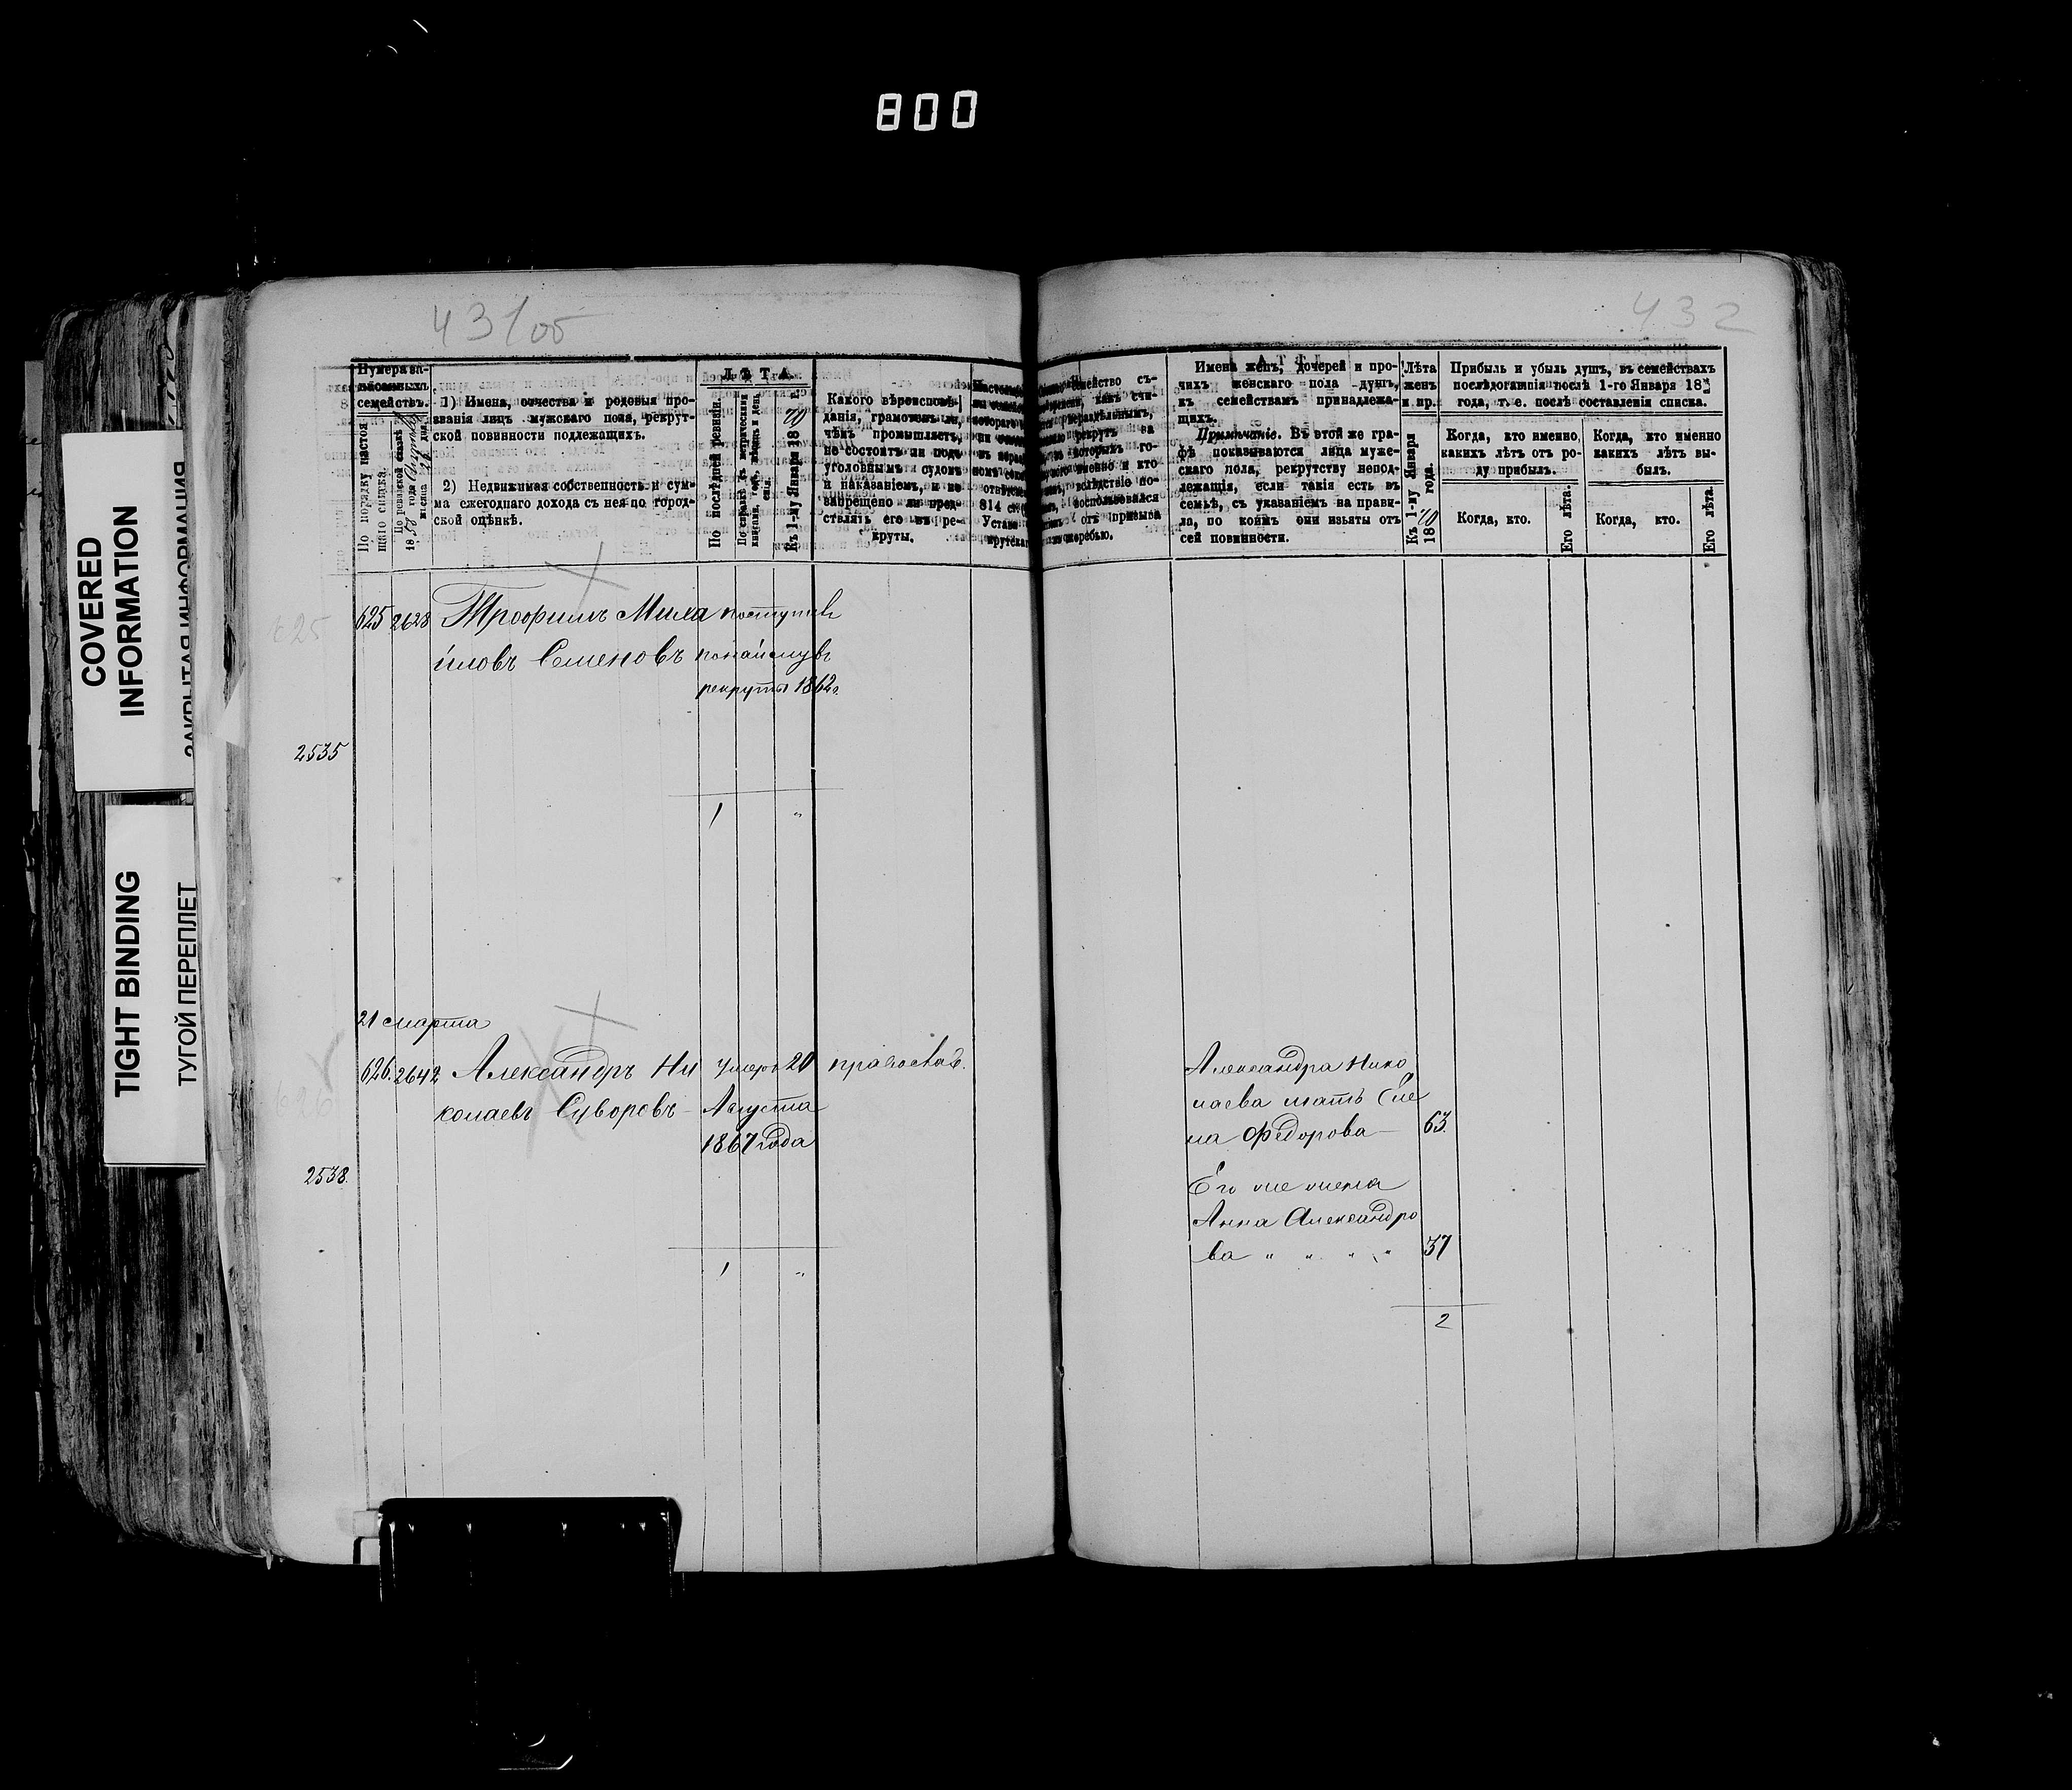 800
COVERED
INFORMATION
ЗАКРЫТАЯ ИНФОРМАЦИЯ
TIGHT BINDING
ТУГОЙ ПЕРЕПЛЕТ
431об
Нумера за-
писанныхъ
семействъ.
По порядку настоя-
щаго списка.
По ревизской сказкѣ
18 года
мѣсяца дня.
1) Имена, отчества и родовыя про-
званія лицъ мужскаго пола, рекрут-
ской повинности подлежащихъ.
2) Недвижимая собственность и сум-
ма ежегоднаго дохода съ нея по город-
ской оцѣнкѣ.
ЛѢТА.
По послѣдней ревизіи.
По справкѣ съ метрическими
книгами, годъ, мѣсяцъ и день
Къ 1-му Января 1870 г.
Какого вѣроисповѣ-
данія, грамотенъ ли,
чѣмъ промышляетъ,
не состоитъ ли подъ
уголовнымъ судомъ
и наказаніемъ, и не
запрещено ли пред-
ставлять его въ ре-
круты.
814 ст.
Устава
рекрутскаго
625 2628 Трофимъ Миха поступилъ
йловъ Семеновъ по найму въ
рекруты 1862 г.
625
2535
1 "
21 марта
626. 2642 Александръ Ни Умеръ 20 православ.
колаевъ Суворовъ - Августа
1867 года
626
2538.
1 "
432
семейство съ-
какъ счи-
нераздѣльнымъ,
рекрутъ на
которыхъ го-
именно и кто
вслѣдствіе по-
воспользовался
отъ призыва
жеребью.
Имена женъ, дочерей и про-
чихъ женскаго пола душъ,
къ семействамъ принадлежа-
щихъ.
Примѣчаніе. Въ этой же гра-
фѣ показываются лица муже-
скаго пола, рекрутству непод-
лежащія, если такія есть въ
семьѣ, съ указаніемъ на прави-
ла, по коимъ они изъяты отъ
сей повинности.
Лѣта
женъ
и пр.
Къ 1-му Января
1870 года.
Прибыль и убыль душъ, въ семействахъ
послѣдовавшія послѣ 1-го Января 18
года, т. е. послѣ составленія списка.
Когда, кто именно,
какихъ лѣтъ отъ ро-
ду прибылъ.
Когда, кто.
Его лѣта.
Когда, кто именно
какихъ лѣтъ вы-
былъ.
Когда, кто.
Его лѣта.
Александра Нико
лаева мать Еле
на Федорова — 63.
Его же жена
Анна Александро
ва " " " " 37
2